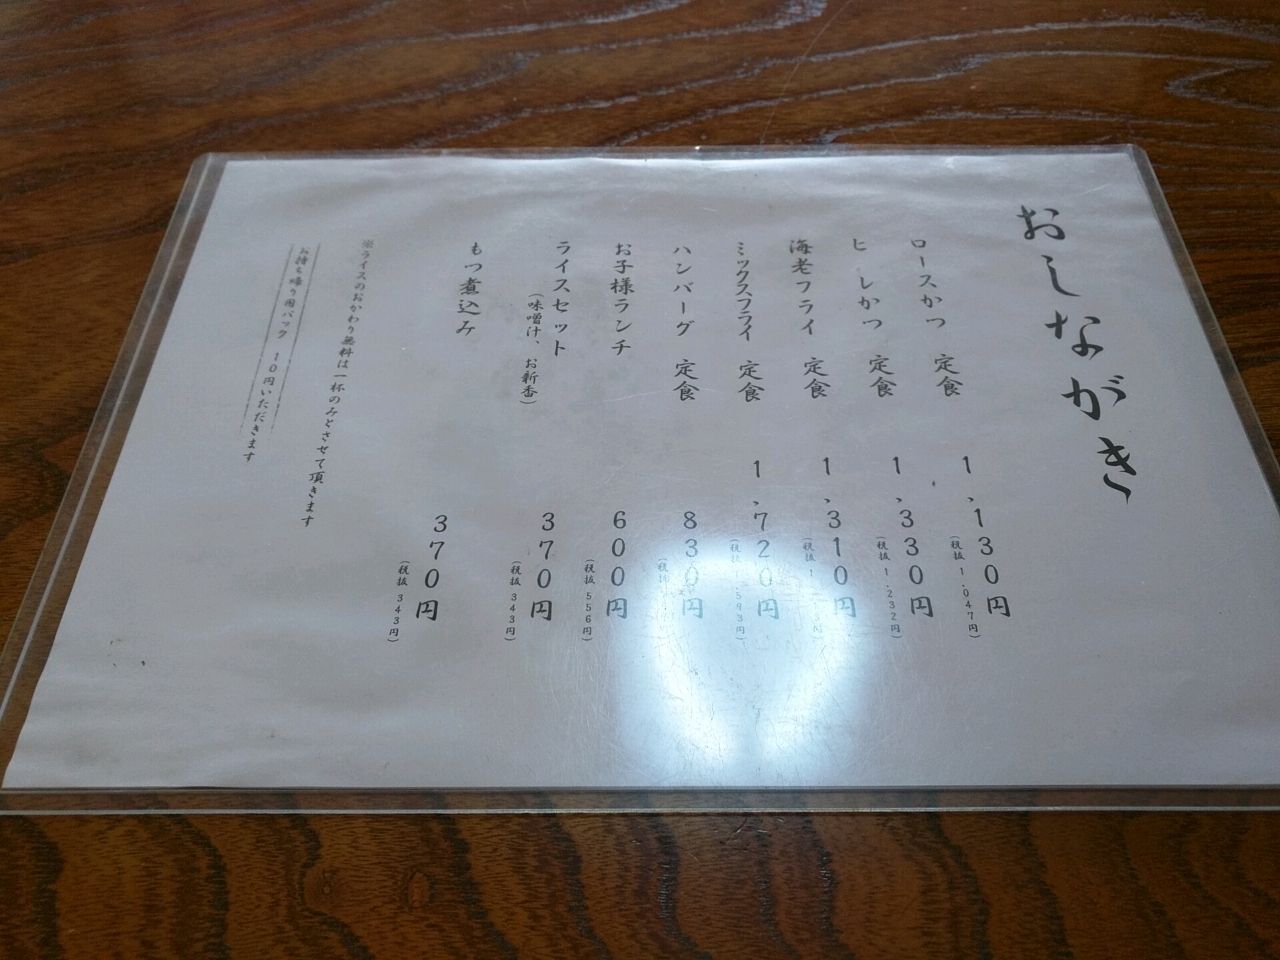 おしながき
ロースかつ 定食 1,130円
(税抜 1,047円)
ヒレかつ 定食 1,330円
(税抜 1,232円)
海老フライ 定食 1,310円
(税抜
ミックスフライ 定食 1,720円
(税抜 1,593円)
ハンバーグ 定食 830円
お子様ランチ 600円
(税抜 556円)
ライスセット 370円
(味噌汁、お新香)
(税抜 343円)
もつ煮込み 370円
(税抜 343円)
※ライスのおかわり無料は一杯のみとさせて頂きます
お持ち帰り用パック 10円いただきます